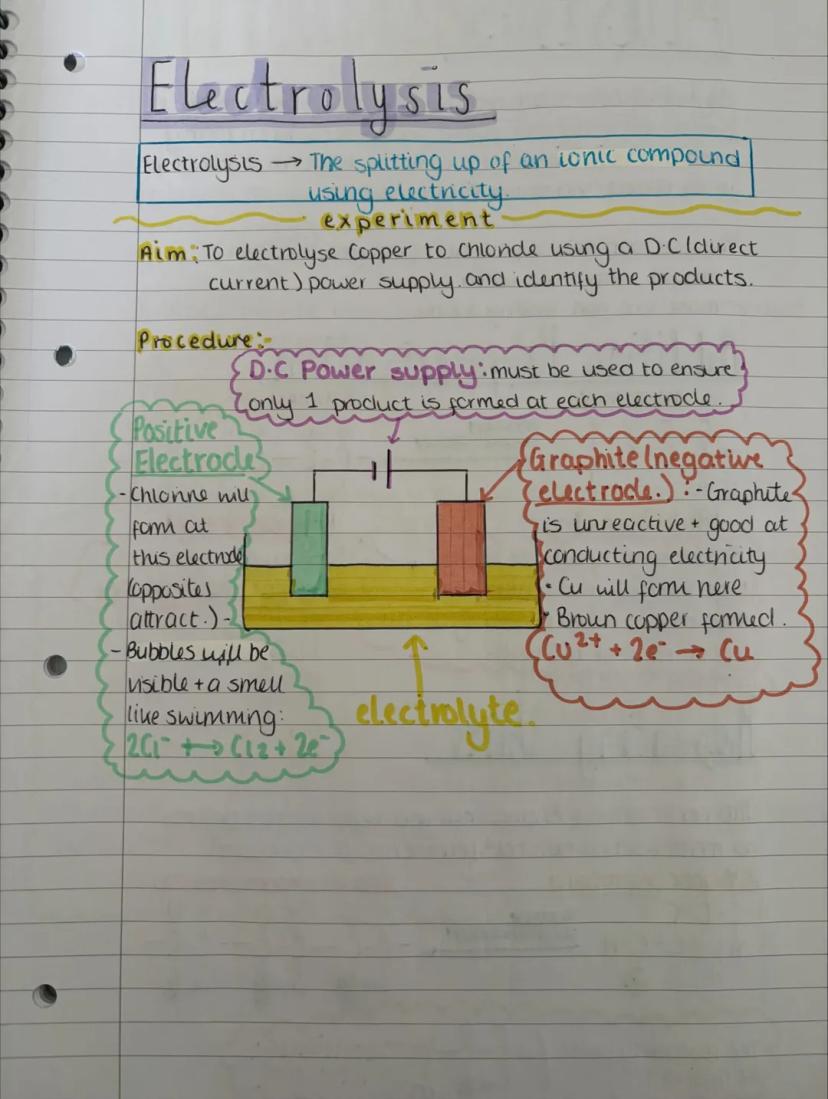 Electrolysis
Electrolysis → The splitting up of an ionic compound
using electricity.
experiment
Aim: To electrolyse Copper to chloride using a D.C (direct
current) power supply and identify the products.
Procedure:-
D.C Power supply: must be used to ensure
only 1 product is formed at each electrode.
Positive
Electrode
- Chlorine will
form at
this electrode
(opposites
attract.) -
- Bubbles will be
visible + a smell
like swimming:
2Cl⁻ ↔ Cl2 + 2e⁻
Graphite (negative
electrode.) :- Graphite
is unreactive + good at
conducting electricity
· Cu will form here
· Brown copper formed.
Cu²⁺ + 2e⁻ → Cu
electrolyte.